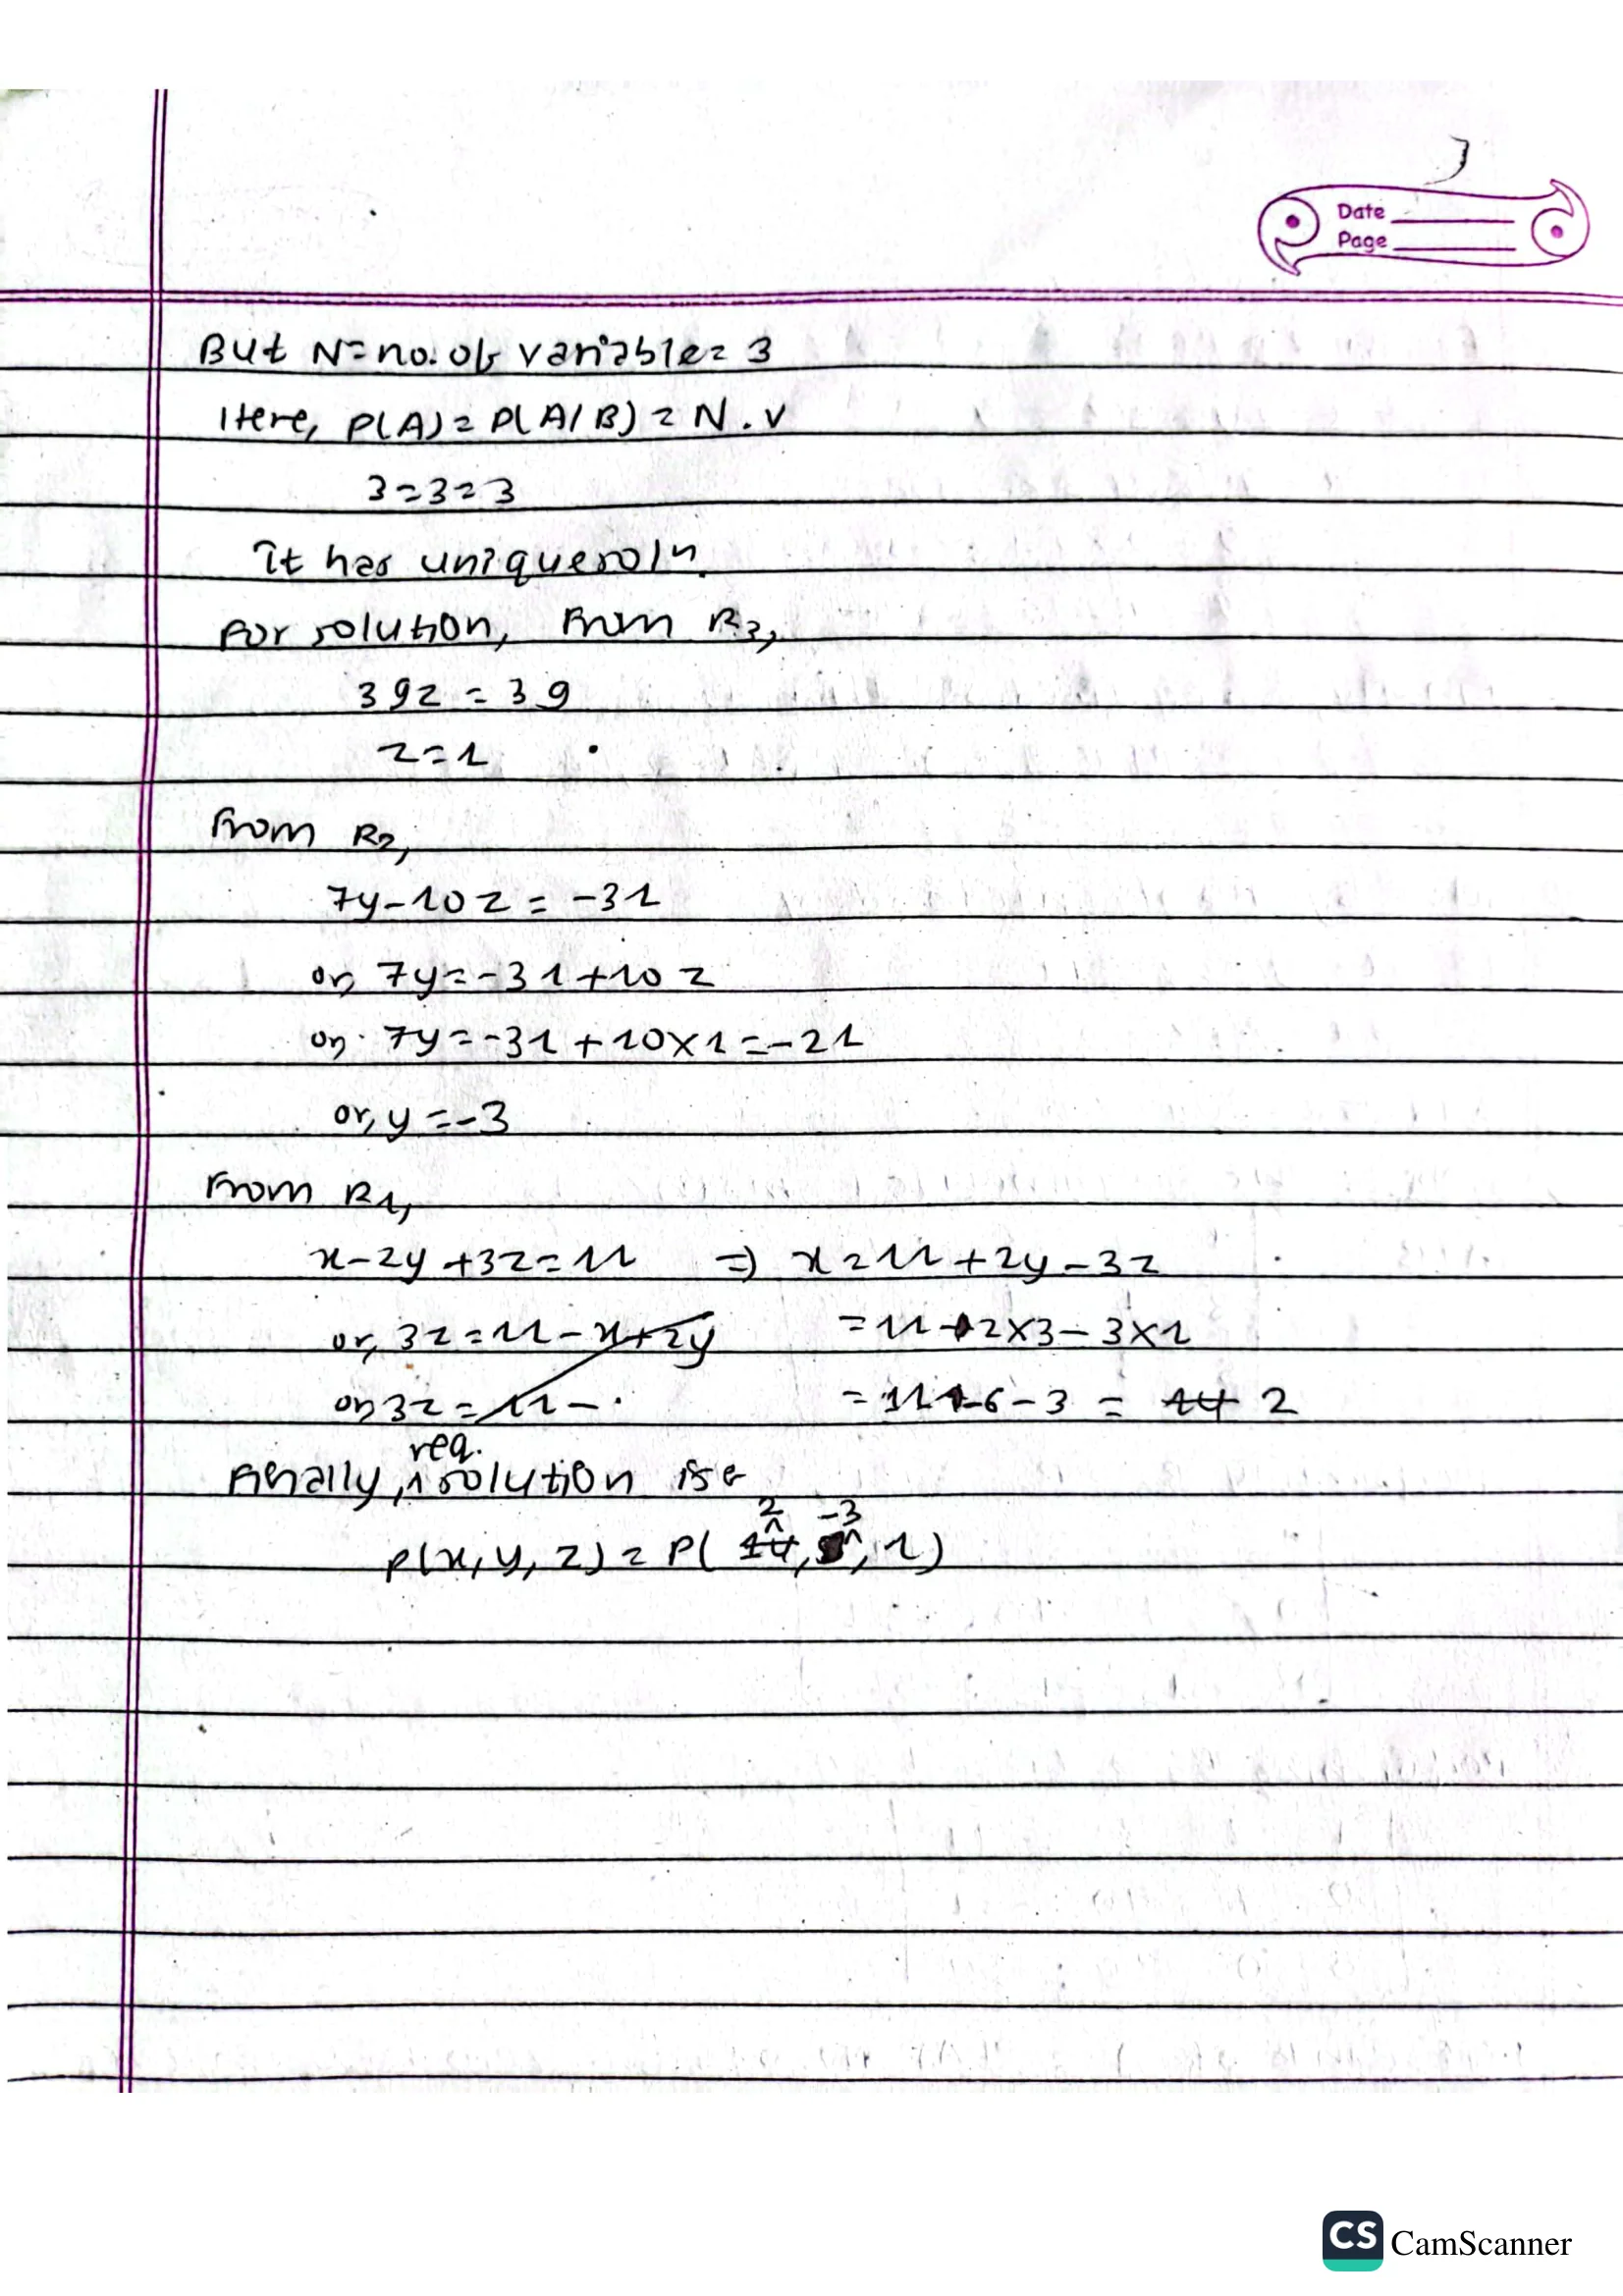 3
Date
Page
But N = no. of variable = 3
Here, P(A) = P(A/B) = N.V
3 = 3 = 3
It has unique soln.
For solution, From R3,
39z = 39
z = 1
From R2,
7y - 10z = -31
or, 7y = -31 + 10z
or, 7y = -31 + 10×1 = -21
or, y = -3
From R1,
x - 2y + 3z = 11 => x = 11 + 2y - 3z
or, 3z = 11 - x + 2y = 11 - 2×3 - 3×1
or, 3z = 11 - = 11 - 6 - 3 = 14 2
req.
Finally, ^ solution is
2 -3
P(x, y, z) = P( 14, , 1)
CS CamScanner